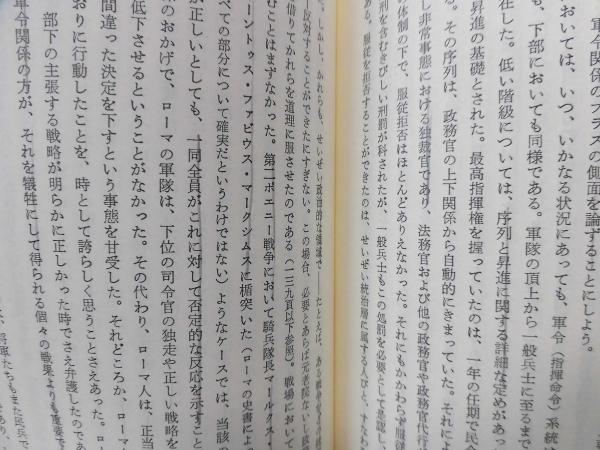 軍令関係のプラスの側面を論ずることにしよう。
においては、いつ、いかなる状況にあっても、軍令(指揮命令)系統
も、下部においても同様である。軍隊の頂上から一般兵士に至るまで
在した。低い階級については、序列と昇進に関する詳細な定めがあっ
昇進の基礎とされた。最高指揮権を握っていたのは、一年の任期で民会
る。その序列は、政務官の上下関係から自動的にきまっていた。それによ
し非常事態における独裁官であり、法務官および他の政務官や政務官代行
の体制の下で、服従拒否はほとんどありえなかった。それにもかかわらず服従
刑を含むきびしい刑罰が科されたが、一般兵士もこの処罰を必要として是認し、
ある。服従を拒否することができたのは、せいぜい統治層に属する人びと、すなわち
しかし、かれらも、せいぜい政治的な領域で――たとえば、ある
反対することができたにすぎない。この場合、必要とあらば元老院ないし
借りてかれらを道理に服させたのである(一三九頁以下参照)。戦場において
むことはまずなかった。第二ポエニー戦争において騎兵隊長マールクス・
ーントゥス・ファビウス・マークシムスに楯突いた(ローマの史書によ
べての部分について確実だというわけではない)ようなケースでは、当該の
が正しいとしても、一同全員がこれに対して否定的な反応を示すこと
のおかげで、ローマの軍隊は、下位の司令官の独走や正しい戦略を
低下させるということがなかった。その代わり、ローマ人は、正当
間違った決定を下すという事態を甘受した。それどころか、ローマ
おりに行動したことを、時として誇らしく思うことさえあった。ロ
部下の主張する戦略が明らかに正しかった時でさえ弁護したのであ
軍令関係の方が、それを犠牲にして得られる個々の戦果よりも重要で
将軍たちもまた民兵で